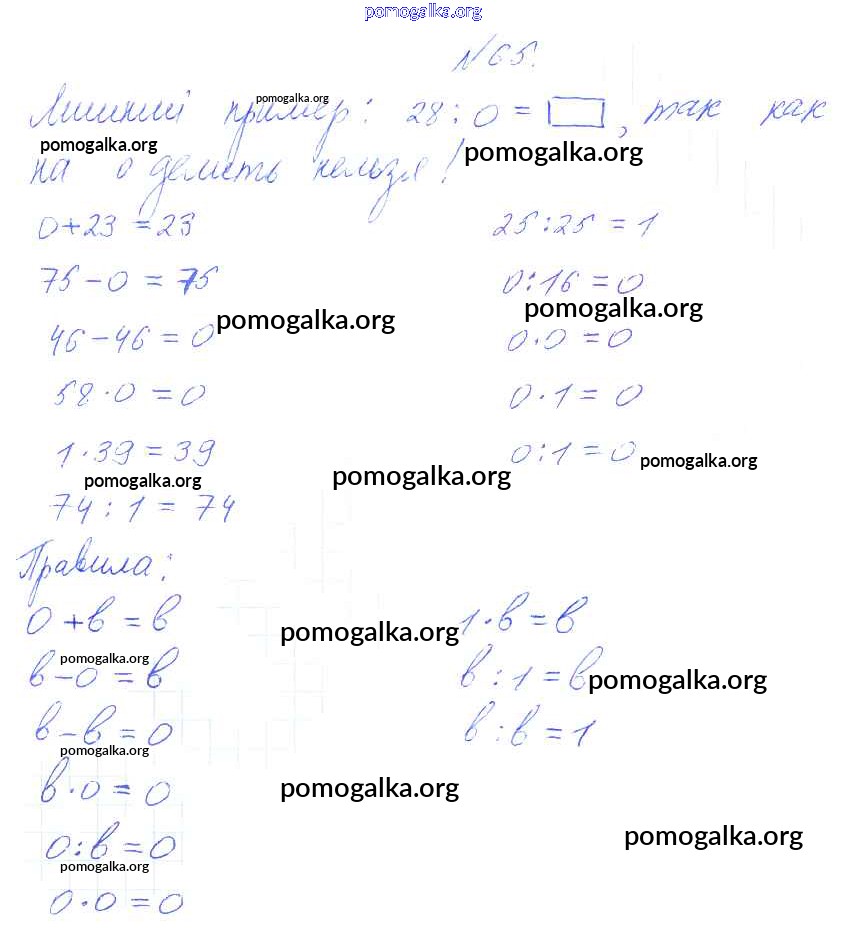 pomogalka.org
№65.
Лишний пример: 28:0=▭, так как
pomogalka.org
на 0 делить нельзя!
pomogalka.org
pomogalka.org
0+23=23
75-0=75
46-46=0
pomogalka.org
58·0=0
1·39=39
pomogalka.org
74:1=74
25:25=1
0:16=0
pomogalka.org
0·0=0
0·1=0
0:1=0
pomogalka.org
pomogalka.org
Правила:
0+в=в
в-0=в
pomogalka.org
в-в=0
pomogalka.org
в·0=0
0:в=0
pomogalka.org
0·0=0
pomogalka.org
1·в=в
в:1=в
pomogalka.org
в:в=1
pomogalka.org
pomogalka.org